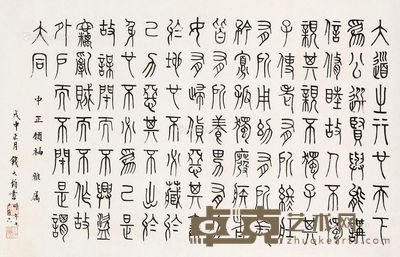 大道之行也天下
為公選賢與能講
信修睦故人不獨
親其親不獨子其
子使老有所終壯
有所用幼有所長
矜寡孤獨廢疾者
皆有所養男有分
女有歸貨惡其棄
於地也不必藏於
己力惡其不出於
身也不必為己是
故謀閉而不興盜
竊亂賊而不作故
外戶而不閉是謂
大同
中正領袖 雅屬
戊申正月 錢大鈞書
卓克艺术网